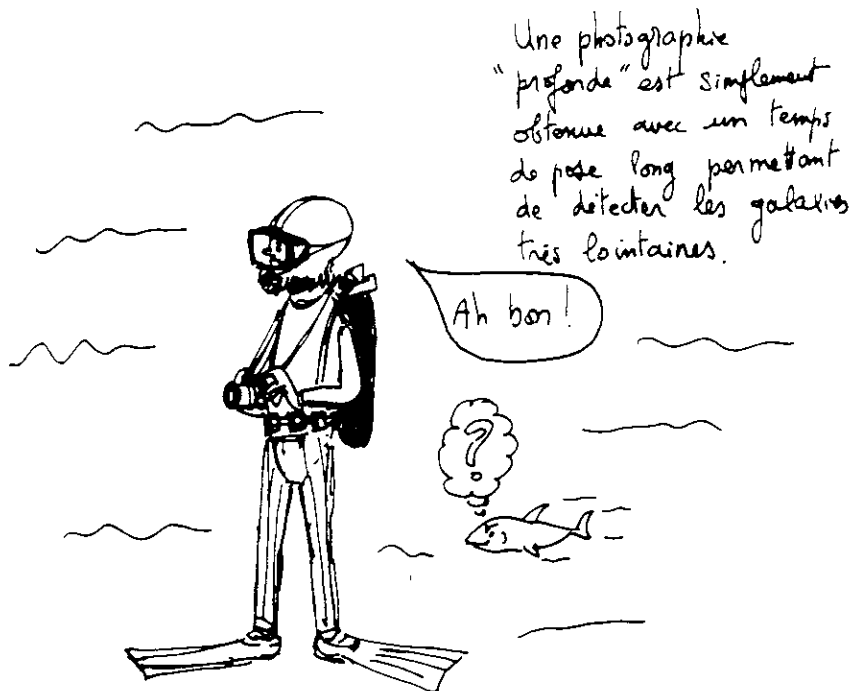 Une photographie
"profonde" est simplement
obtenue avec un temps
de pose long permettant
de détecter les galaxies
très lointaines.
Ah bon !
?